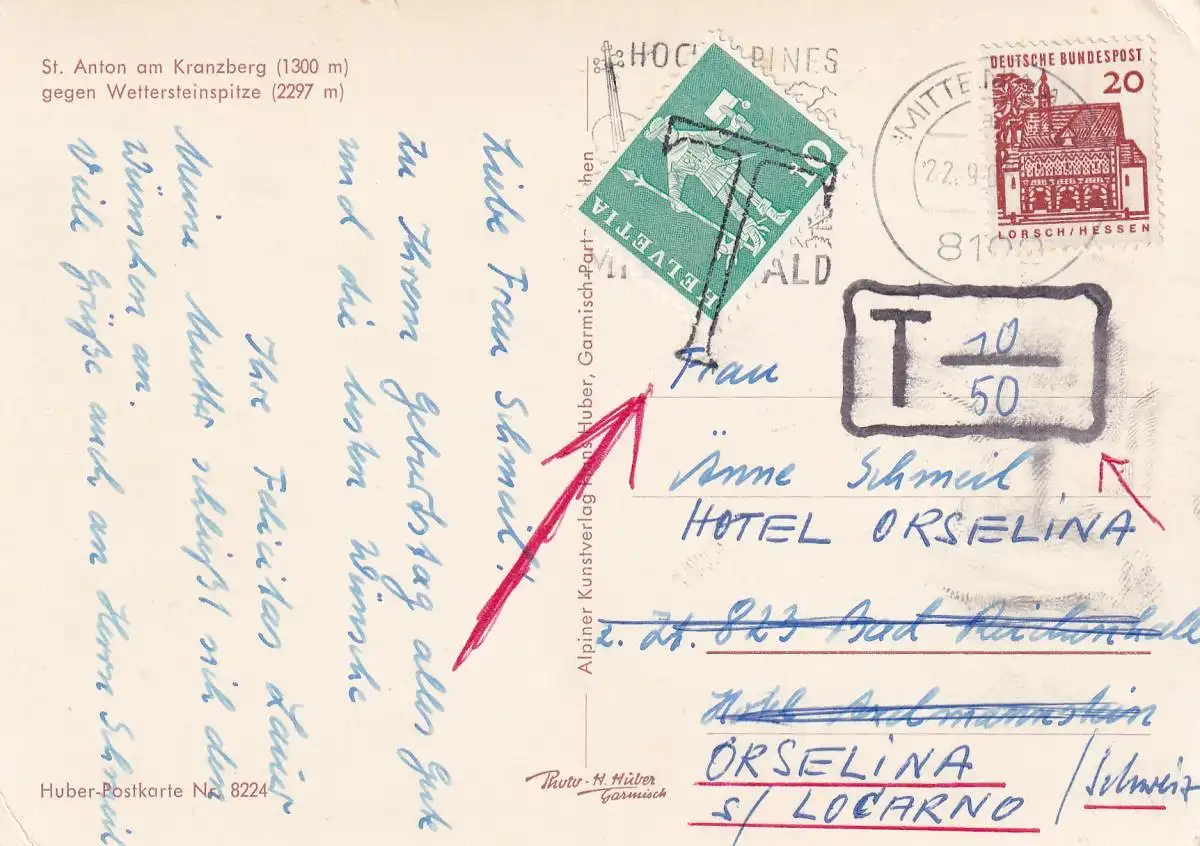 St. Anton am Kranzberg (1300 m)
gegen Wettersteinspitze (2297 m)
Liebe Frau Schmeil!
Zu Ihrem Geburtstag alles Gute
und die besten Wünsche
Ihre Felicitas Lauer
Meine Mutter schließt sich den
Wünschen an.
Viele Grüße auch an Herrn Schmeil
Huber-Postkarte Nr. 8224
Alpiner Kunstverlag Huber, Garmisch-Part
Photo-H. Huber
Garmisch
HOC PINES
ALD
HELVETIA
5
MITTEN
22.9
8100
DEUTSCHE BUNDESPOST
20
LORSCH/HESSEN
T
T 10
50
Frau
Änne Schmeil
HOTEL ORSELINA
z. Zt. 823 Bad Reichenhall
Hotel Axelmannstein
ORSELINA
S/ LOCARNO / Schweiz